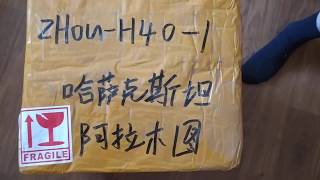 ZHOU-H40-1
哈萨克斯坦
阿拉木图
FRAGILE